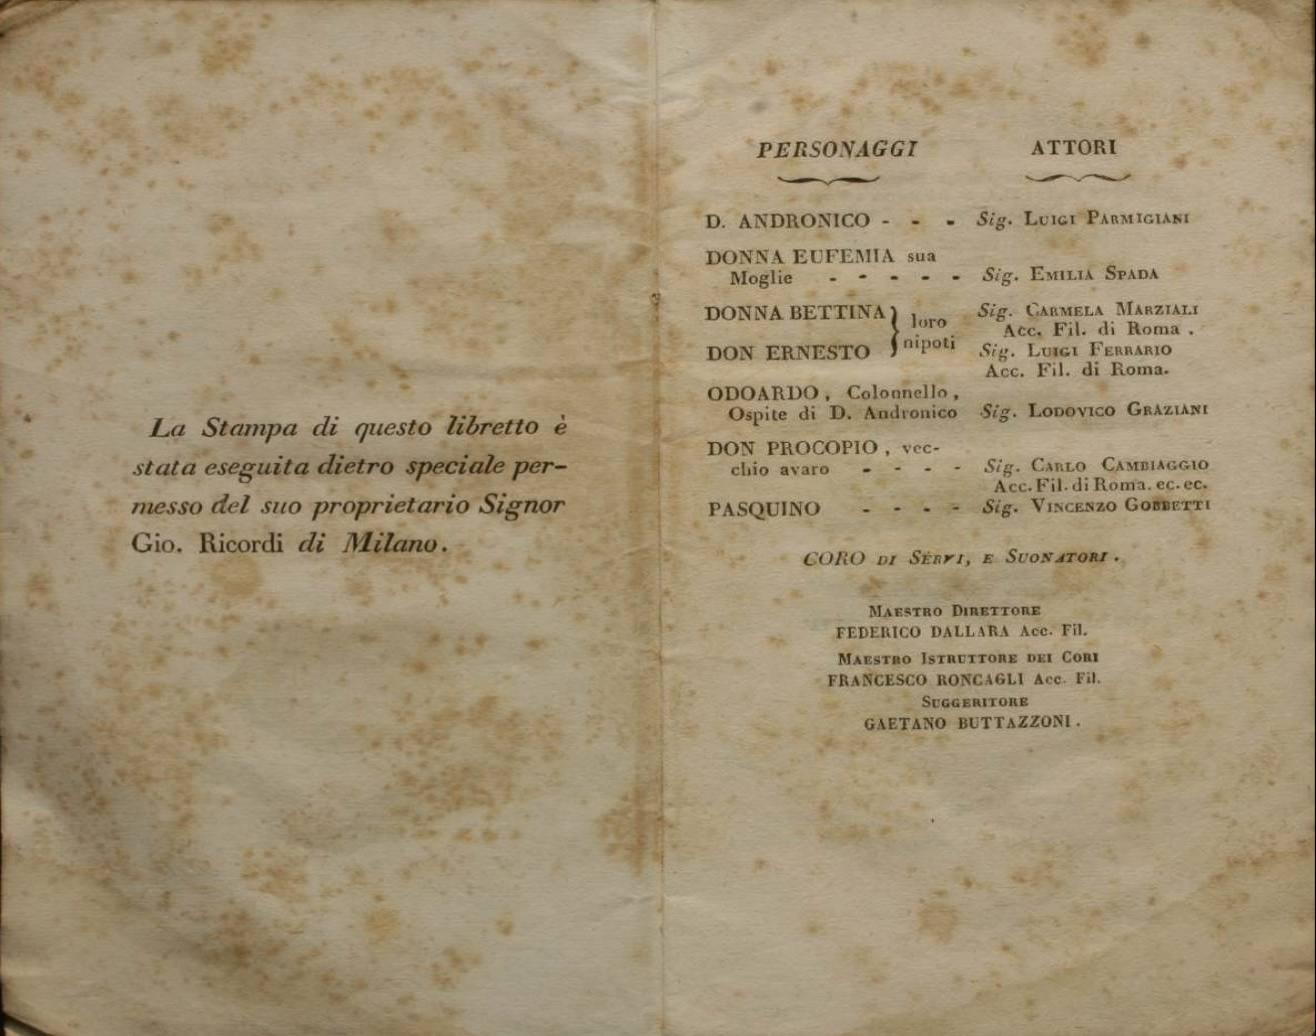 La Stampa di questo libretto è
stata eseguita dietro speciale per-
messo del suo proprietario Signor
Gio. Ricordi di Milano.
PERSONAGGI ATTORI
D. ANDRONICO - - - Sig. LUIGI PARMIGIANI
DONNA EUFEMIA sua
Moglie - - - - - Sig. EMILIA SPADA
DONNA BETTINA } loro Sig. CARMELA MARZIALI
Acc. Fil. di Roma.
DON ERNESTO } nipoti Sig. LUIGI FERRARIO
Acc. Fil. di Roma.
ODOARDO, Colonnello,
Ospite di D. Andronico Sig. LODOVICO GRAZIANI
DON PROCOPIO, vec-
chio avaro - - - - Sig. CARLO CAMBIAGGIO
Acc. Fil. di Roma. ec. ec.
PASQUINO - - - - Sig. VINCENZO GOBBETTI
CORO DI SERVI, E SUONATORI.
MAESTRO DIRETTORE
FEDERICO DALLARA Acc. Fil.
MAESTRO ISTRUTTORE DEI CORI
FRANCESCO RONCAGLI Acc. Fil.
SUGGERITORE
GAETANO BUTTAZZONI.